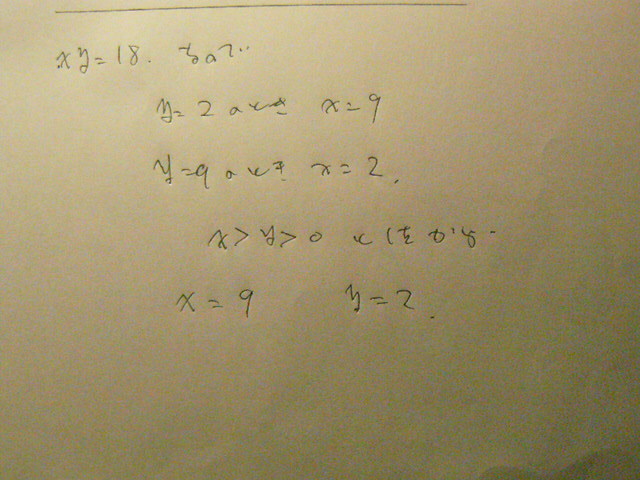 xy=18. なので
y=2のとき x=9
y=9のとき x=2.
x>y>0
x=9 y=2.